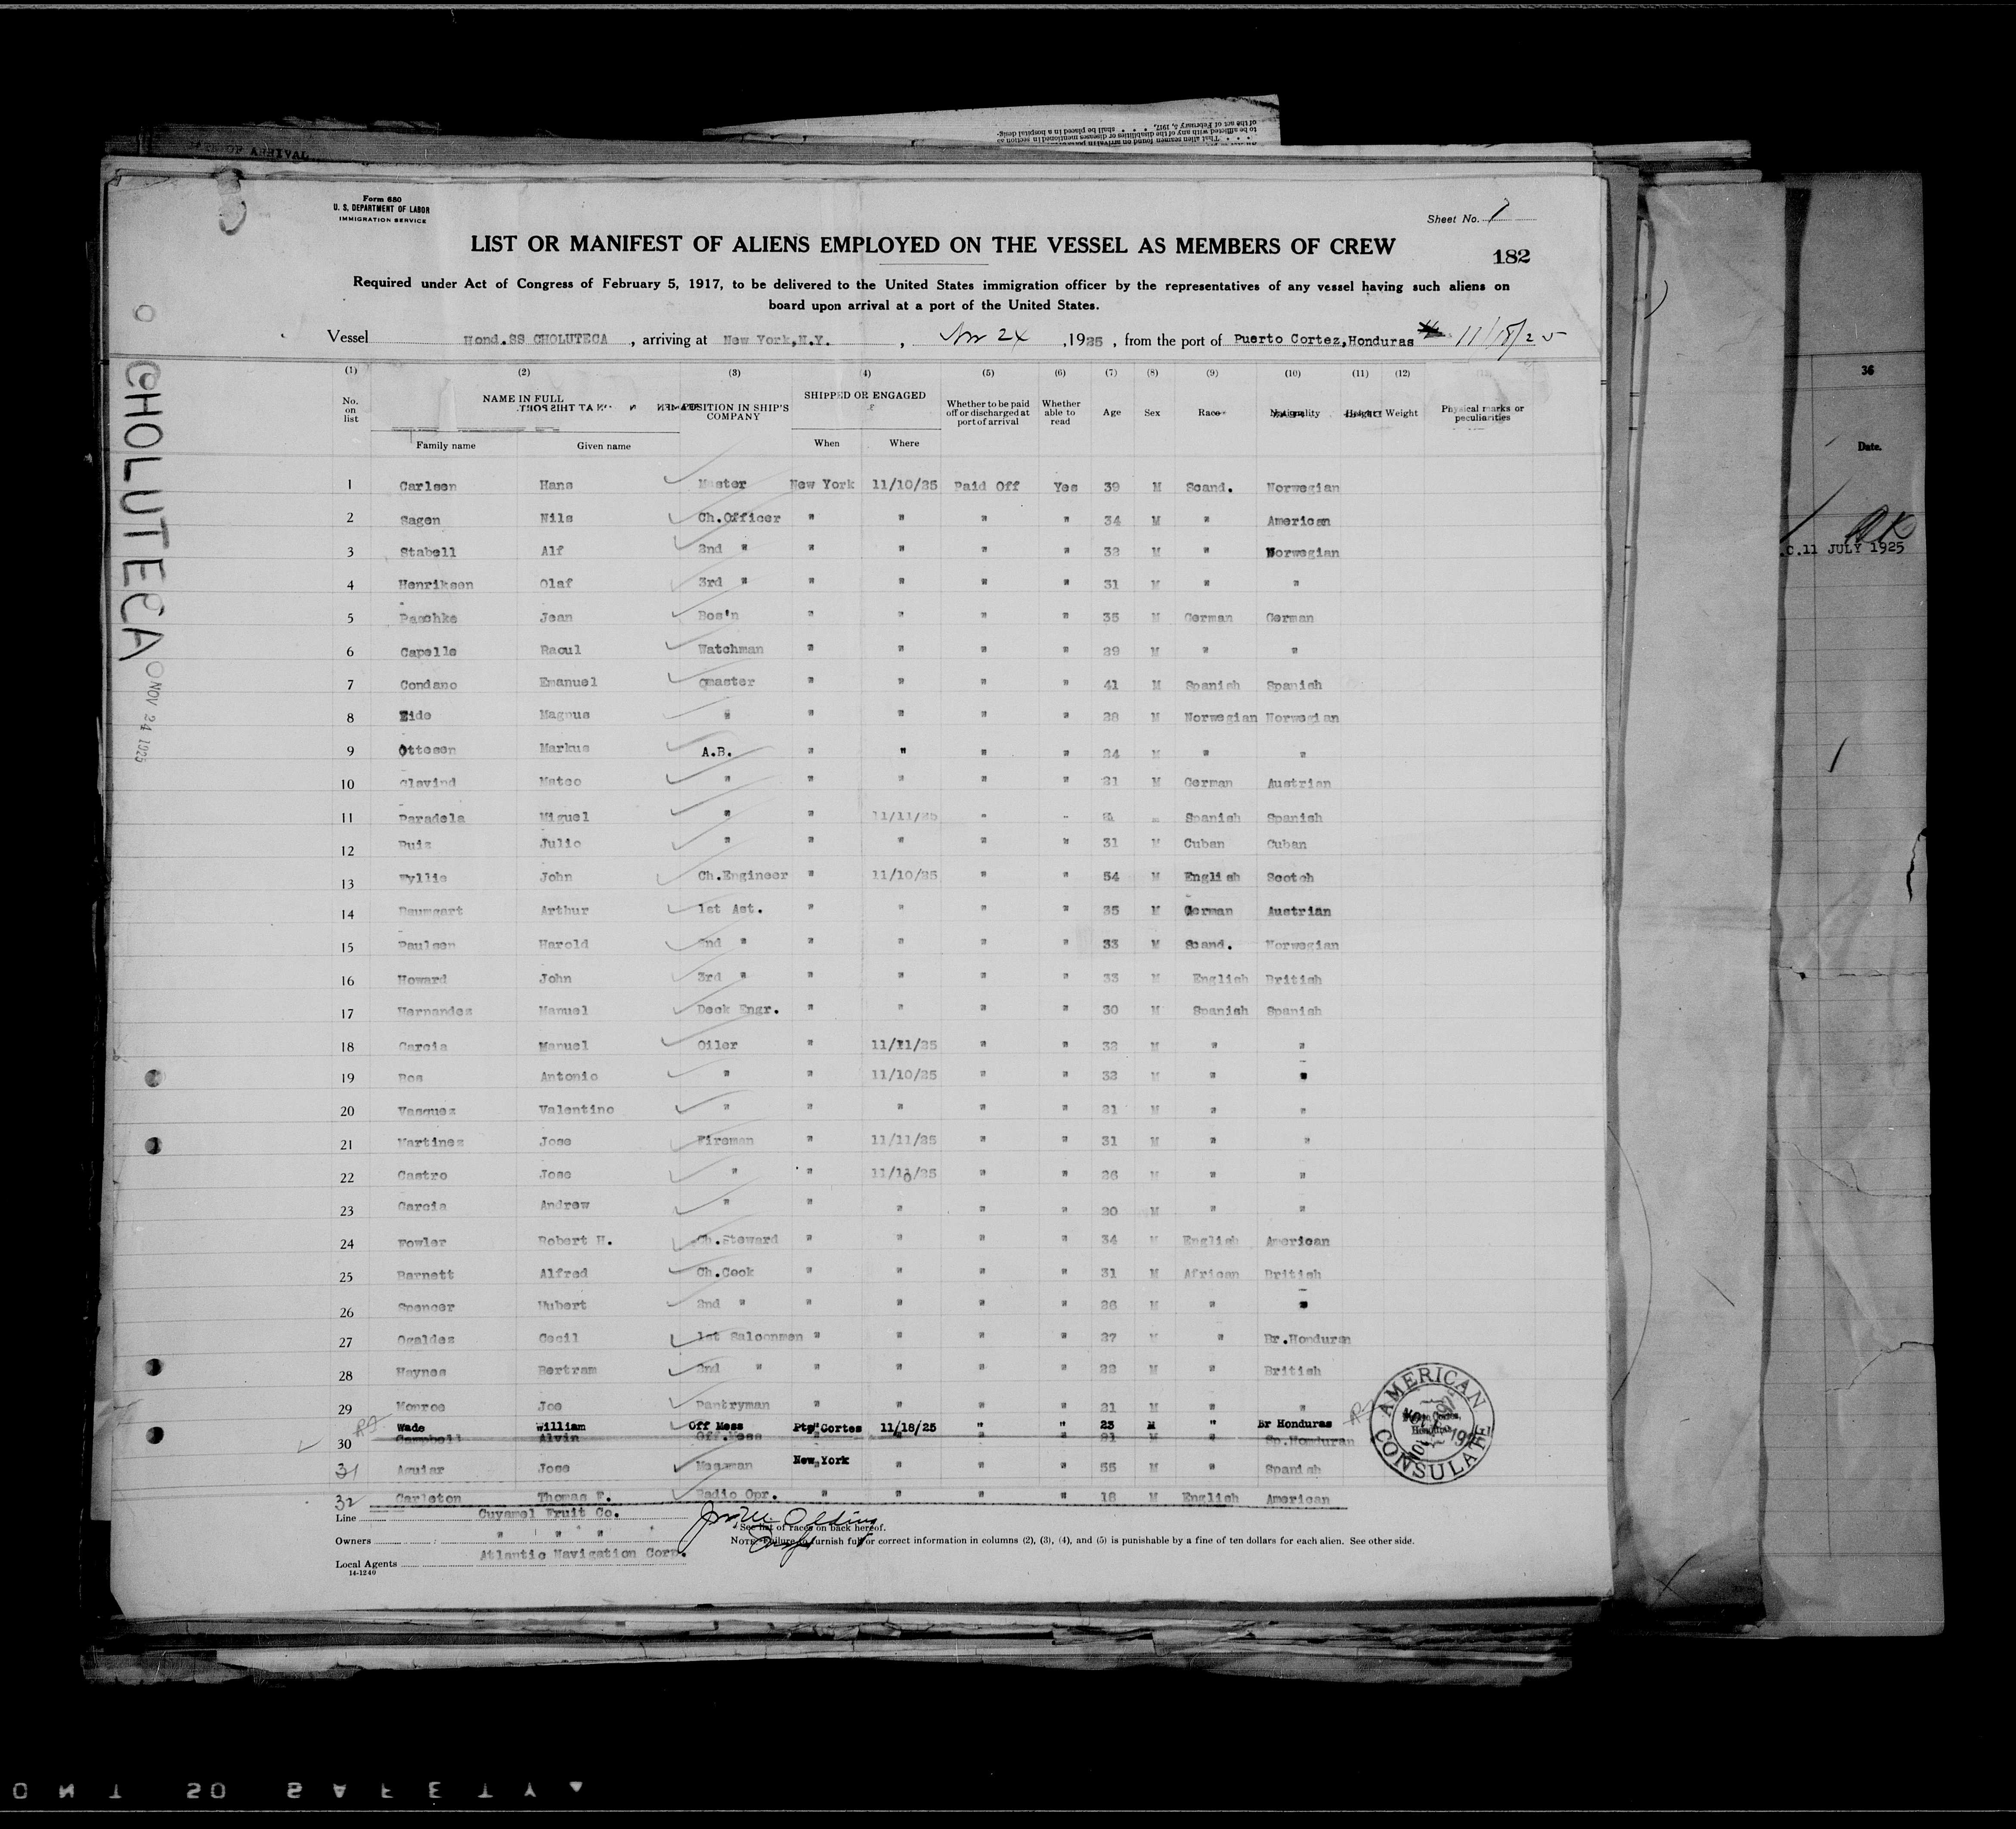 Form 680
U. S. DEPARTMENT OF LABOR
IMMIGRATION SERVICE
Sheet No. 1
LIST OR MANIFEST OF ALIENS EMPLOYED ON THE VESSEL AS MEMBERS OF CREW
182
Required under Act of Congress of February 5, 1917, to be delivered to the United States immigration officer by the representatives of any vessel having such aliens on
board upon arrival at a port of the United States.
Vessel Hond.SS CHOLUTECA , arriving at New York,N.Y. , Nov 24 ,1925 , from the port of Puerto Cortez,Honduras 11/18/25
(1) (2) (3) (4) (5) (6) (7) (8) (9) (10) (11) (12)
No. on list NAME IN FULL POSITION IN SHIP'S COMPANY SHIPPED OR ENGAGED Whether to be paid off or discharged at port of arrival Whether able to read Age Sex Race Nationality Height Weight Physical marks or peculiarities
Family name Given name When Where
1 Carlsen Hans Master New York 11/10/25 Paid Off Yes 39 M Scand. Norwegian
2 Sagen Nils Ch.Officer " " " " 34 M " American
3 Stabell Alf 2nd " " " " " 32 M " Norwegian
4 Henriksen Olaf 3rd " " " " " 31 M " "
5 Paschke Jean Bos'n " " " " 35 M German German
6 Capelle Raoul Watchman " " " " 29 M " "
7 Condano Emanuel Qmaster " " " " 41 M Spanish Spanish
8 Eide Magnus " " " " " 28 M Norwegian Norwegian
9 Ottosen Markus A.B. " " " " 24 M " "
10 Glavind Mateo " " " " " 21 M German Austrian
11 Paradela Miguel " " 11/11/25 " " Spanish Spanish
12 Ruiz Julio " " " " " 31 M Cuban Cuban
13 Wyllie John Ch.Engineer " 11/10/25 " " 54 M English Scotch
14 Baumgart Arthur 1st Ast. " " " " 35 M German Austrian
15 Paulsen Harold 2nd " " " " " 33 M Scand. Norwegian
16 Howard John 3rd " " " " " 33 M English British
17 Hernandez Manuel Deck Engr. " " " " 30 M Spanish Spanish
18 Garcia Manuel Oiler " 11/11/25 " " 32 M " "
19 Ros Antonio " " 11/10/25 " " 32 M " "
20 Vasquez Valentino " " " " " 21 M " "
21 Martinez Jose Fireman " 11/11/25 " " 31 M " "
22 Castro Jose " " 11/10/25 " " 26 M " "
23 Garcia Andrew " " " " " 20 M " "
24 Fowler Robert H. Ch.Steward " " " " 34 M English American
25 Barnett Alfred Ch.Cook " " " " 31 M African British
26 Spencer Hubert 2nd " " " " " 26 M " "
27 Ogaldez Cecil 1st Saloonmen " " " " 27 M " Br.Honduran
28 Haynes Bertram 2nd " " " " " 22 M " British
29 Monroe Joe Pantryman " " " " 21 M " "
Wade William Off Mess Pto Cortes 11/18/25 " " 23 M " Br Honduras
30 Campbell Alvin Off.Mess " " " " 21 M " Sp.Honduran
31 Aguiar Jose Messman New York " " " 55 M " Spanish
32 Carleton Thomas F. Radio Opr. " " " " 18 M English American
Line Cuyamel Fruit Co.
Owners " " " "
Local Agents Atlantic Navigation Corp.
14-1240
See list of races on back hereof.
NOTE.—Failure to furnish full or correct information in columns (2), (3), (4), and (5) is punishable by a fine of ten dollars for each alien. See other side.
AMERICAN CONSULATE
CHOLUTECA
NOV 24 1925
36
Date.
11 JULY 1925
OF ARRIVAL
SAFETY